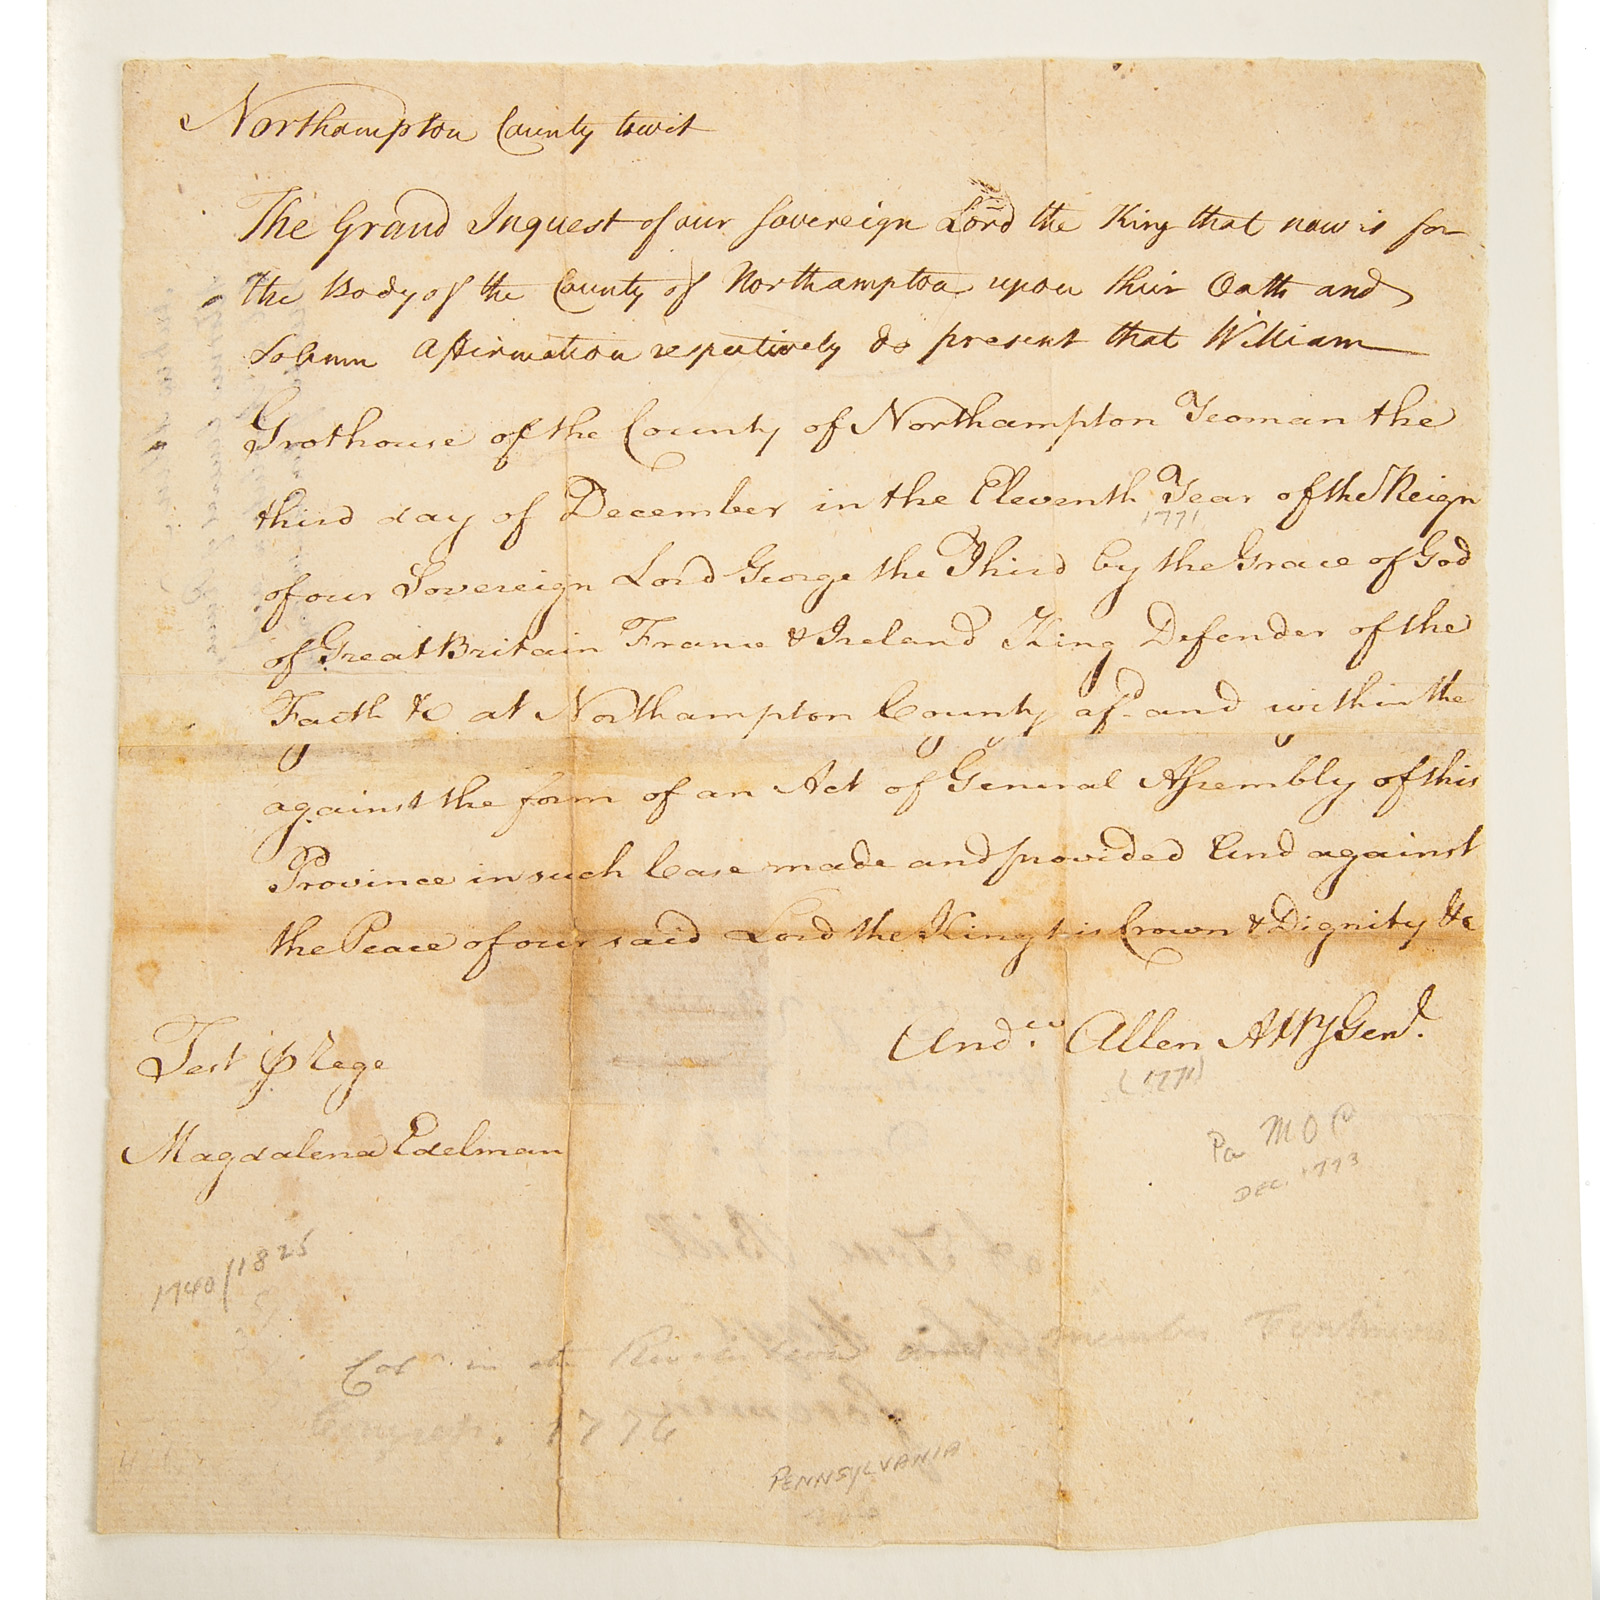 Northampton County towit
The Grand Inquest of our sovereign Lord the King that now is for
the Body of the County of Northampton upon their Oath and
Solemn Affirmation respectively do present that William
Grothouse of the County of Northampton Yeoman the
third day of December in the Eleventh Year of the Reign
1771
of our Sovereign Lord George the Third by the Grace of God
of Great Britain France & Ireland King Defender of the
Faith &c at Northampton County afd. and within the
against the form of an Act of General Assembly of this
Province in such Case made and provided And against
the Peace of our said Lord the King his Crown & Dignity &c
Andew. Allen Atty Genl.
(1771)
Test p Rege
Magdalena Edelman
Pa M O C
DEC. 1773
1740/1825
A True Bill
Col in member
Congress. 1776
PENNSYLVANIA